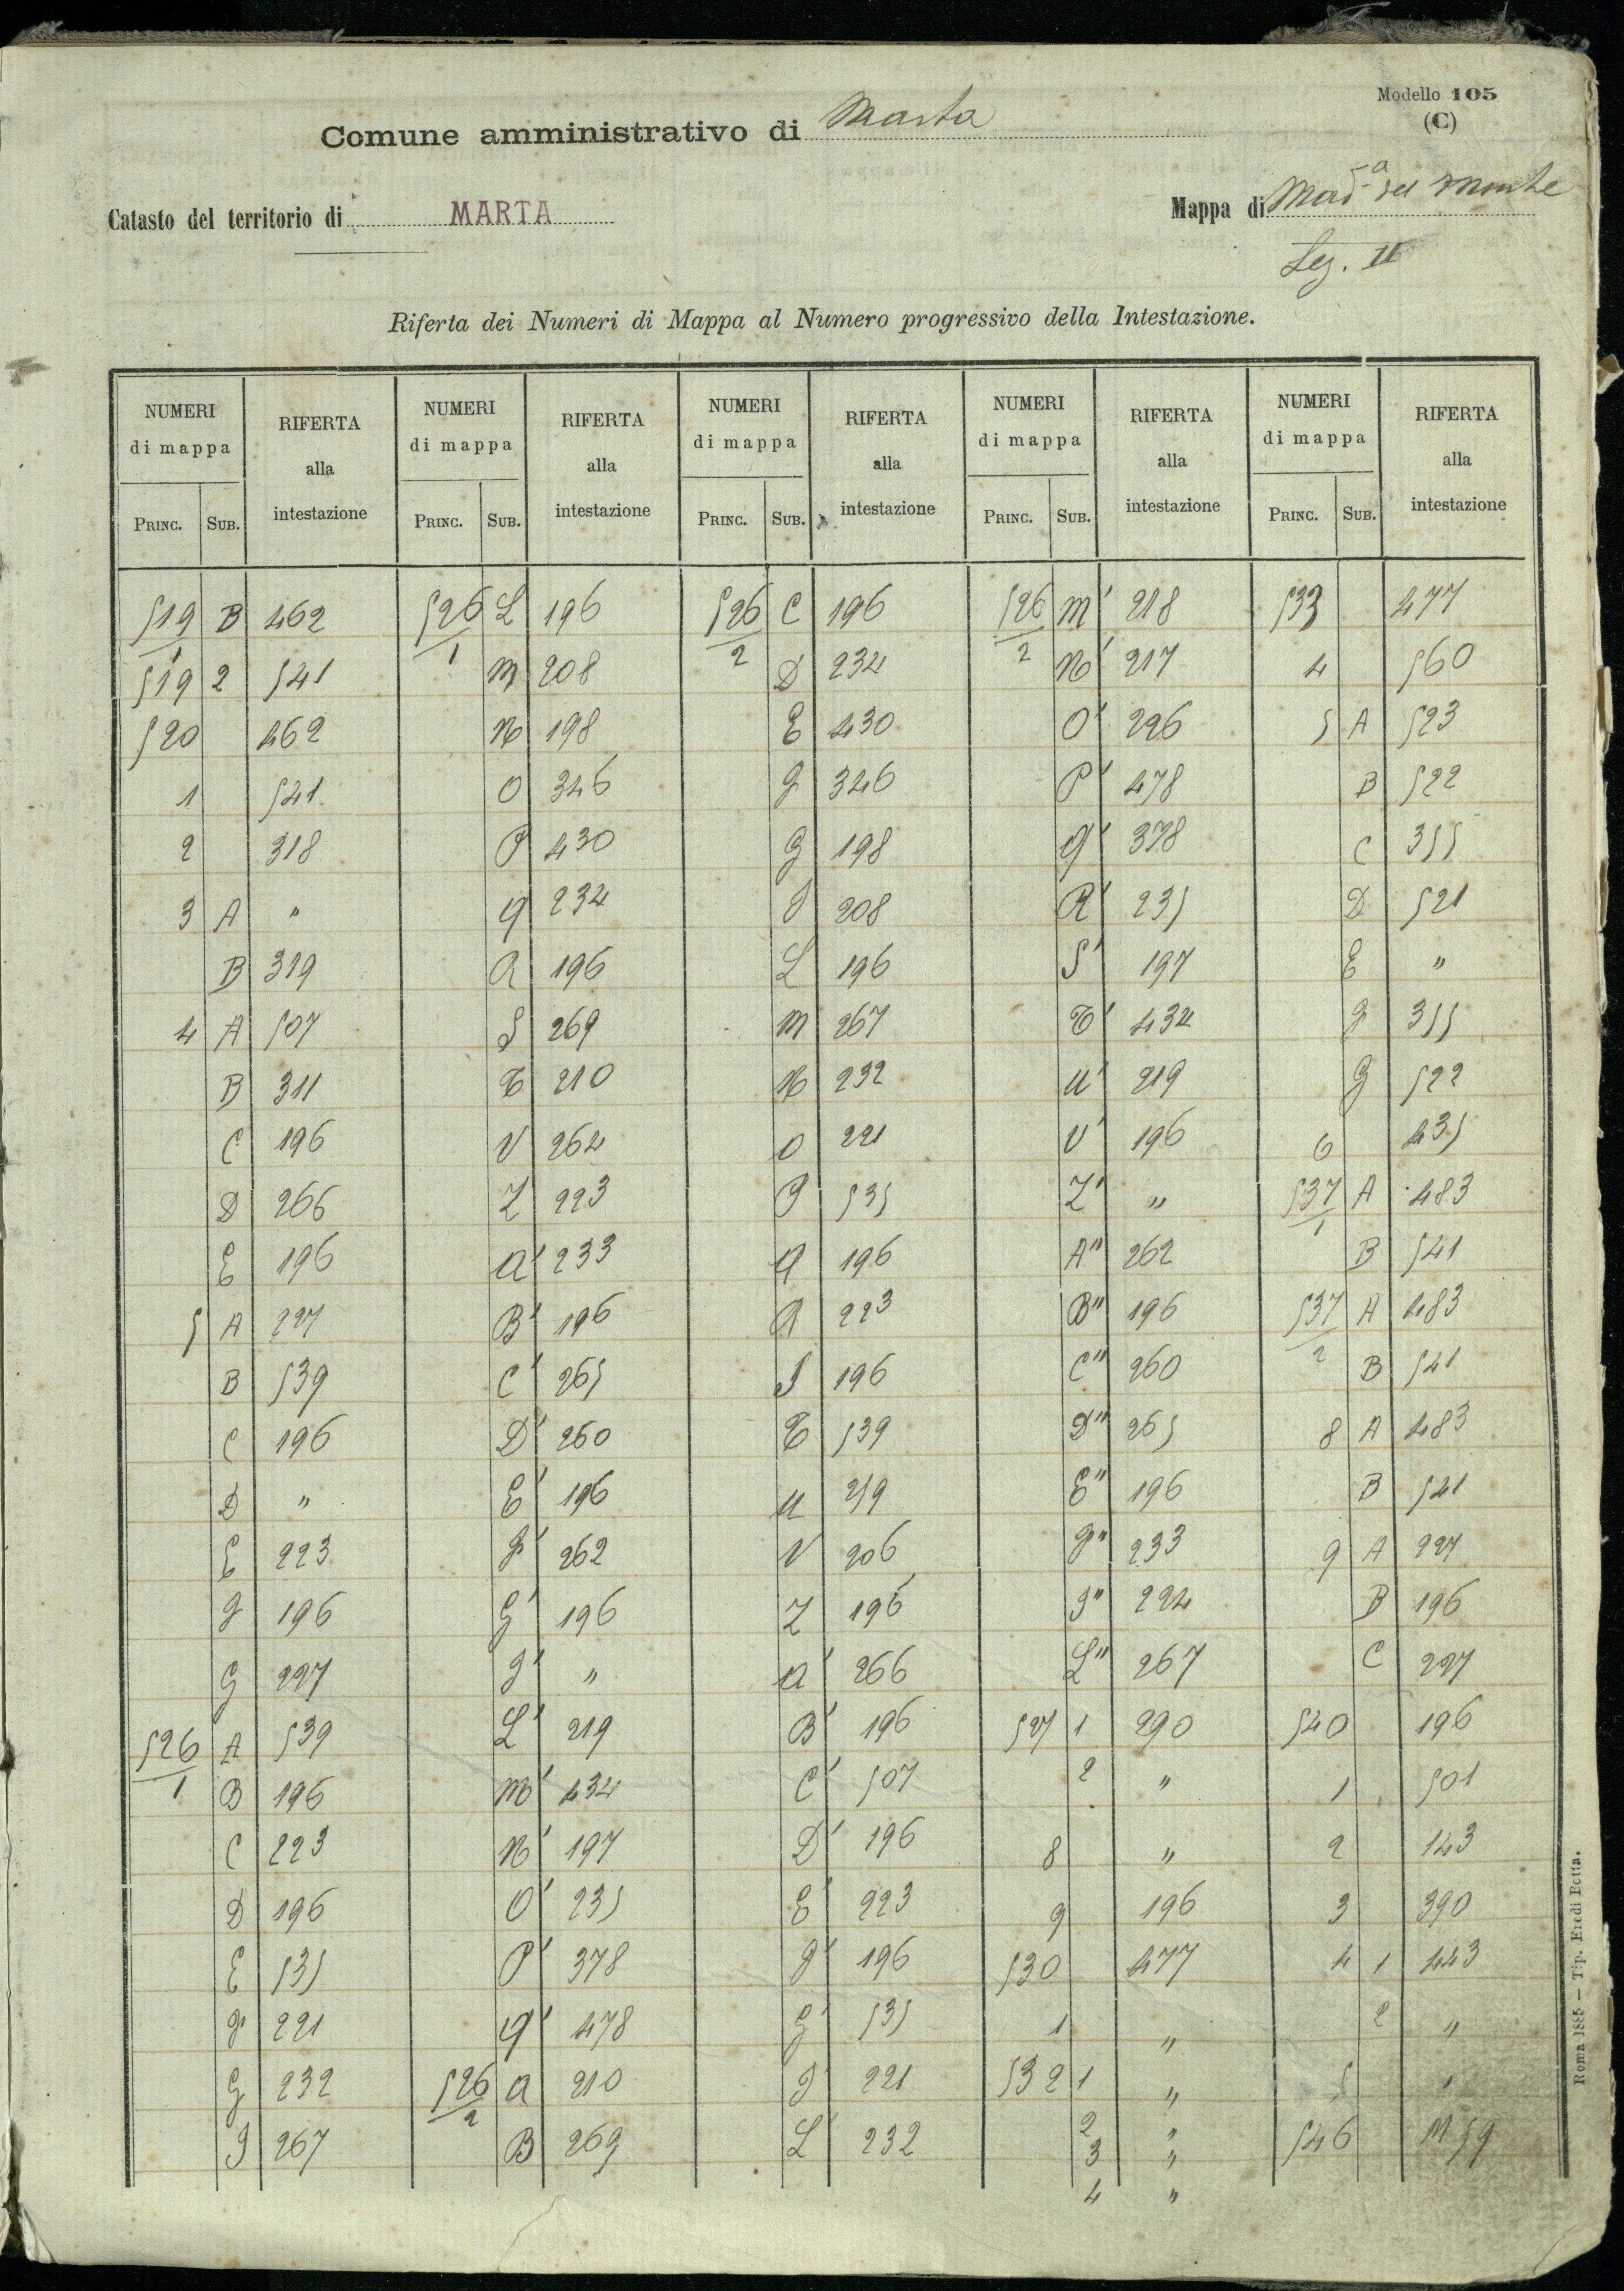 Modello 105
(C)
Comune amministrativo di Marta
Catasto del territorio di MARTA
Mappa di Mad.a del Monte
Sez. II
Riferta dei Numeri di Mappa al Numero progressivo della Intestazione.
NUMERI di mappa RIFERTA alla intestazione NUMERI di mappa RIFERTA alla intestazione NUMERI di mappa RIFERTA alla intestazione NUMERI di mappa RIFERTA alla intestazione NUMERI di mappa RIFERTA alla intestazione
PRINC. SUB. PRINC. SUB. PRINC. SUB. PRINC. SUB. PRINC. SUB.
519/1 B 462 526/1 L 196 526/2 C 196 526/2 M' 218 533 477
519 2 541 M 208 D 234 N' 217 4 560
520 462 N 198 E 430 O' 226 5 A 523
1 541 O 346 F 346 P' 478 B 522
2 318 P 430 G 198 Q' 378 C 355
3 A " Q 234 I 208 R' 235 D 521
B 319 R 196 L 196 S' 197 E "
4 A 507 S 269 M 267 T' 434 F 355
B 311 T 210 N 232 U' 219 G 522
C 196 V 264 O 221 V' 196 6 435
D 266 Z 223 P 535 Z' " 537/1 A 483
E 196 A' 233 Q 196 A" 262 B 541
5 A 227 B' 196 R 223 B" 196 537/2 A 483
B 539 C' 265 S 196 C" 260 B 541
C 196 D' 260 T 539 D" 265 8 A 483
D " E' 196 U 219 E" 196 B 541
E 223 F' 262 V 206 F" 233 9 A 227
F 196 G' 196 Z 196 I" 224 B 196
G 227 I' " A' 266 L" 267 C 227
526/1 A 539 L' 219 B' 196 527 1 290 540 196
B 196 M' 434 C' 507 2 " 1 501
C 223 N' 197 D' 196 8 " 2 143
D 196 O' 235 E' 223 9 196 3 390
E 535 P' 378 F' 196 530 477 4 1 443
F 221 Q' 478 G' 535 1 " 2 "
G 232 526/2 A 210 I' 221 532 1 " 5 "
I 267 B 269 L' 232 2 " 546
3 "
4 "
Roma 1885 — Tip. Eredi Botta.